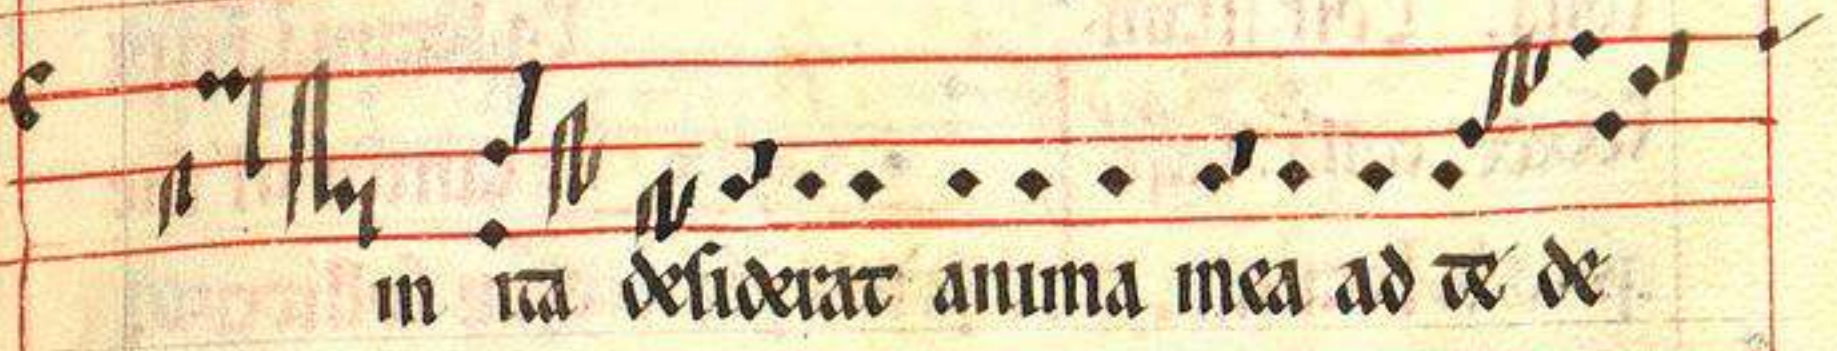 in ita desiderat anima mea ad te de